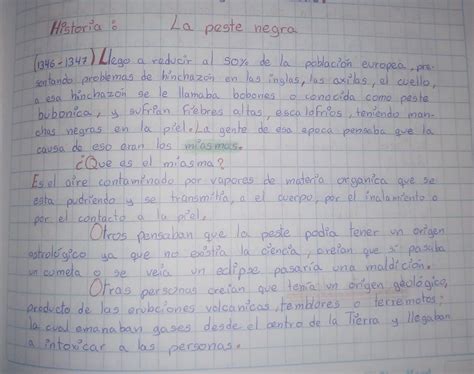 Historia: La peste negra
(1346-1347) Llego a reducir al 50% de la población europea, pre-
sentando problemas de hinchazón en las inglas, las axilas, el cuello,
a esa hinchazón se le llamaba bobones o conocida como peste
bubonica, y sufrian fiebres altas, escalofrios, teniendo man-
chas negras en la piel. La gente de esa epoca pensaba que la
causa de eso eran los miasmas.
¿Que es el miasma?
Es el aire contaminado por vapores de materia organica que se
esta pudriendo y se transmitia, a el cuerpo, por el inalamiento o
por el contacto a la piel.
Otros pensaban que la peste podia tener un origen
astrológico ya que no existia la ciencia, creian que si pasaba
un cometa o se veia un eclipse pasaria una maldición.
Otras personas creian que tenia un origen geológico,
producto de las erubciones volcanicas, temblores o terremotos;
la cual emanaban gases desde el centro de la Tierra y llegaban
a intoxicar a las personas.